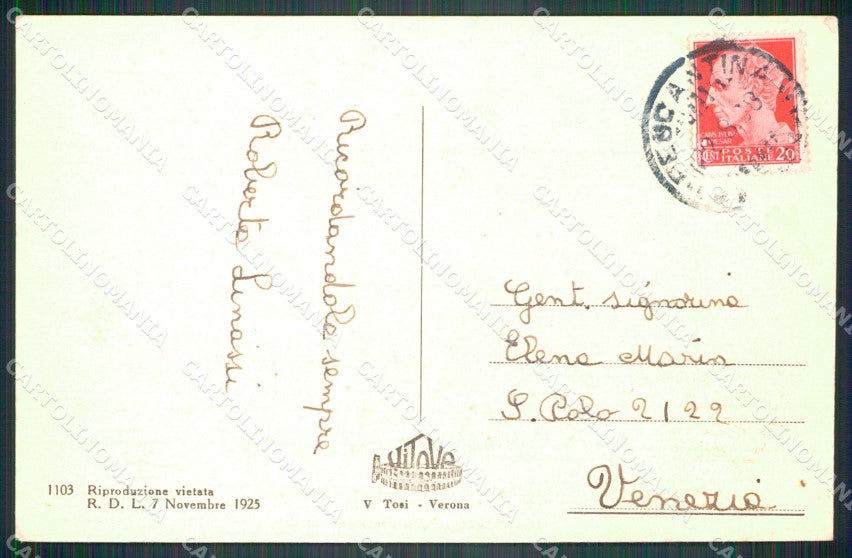 Ricordandola sempre
Roberto Linassi
Gent. signorina
Elena Marin
S. Polo 2122
Venezia
CAIVS IVLIVS
CAESAR
POSTE
ITALIANE 20
CENT
VITOVE
1103 Riproduzione vietata
R. D. L. 7 Novembre 1925
V Tosi - Verona
CARTOLINOMANIA